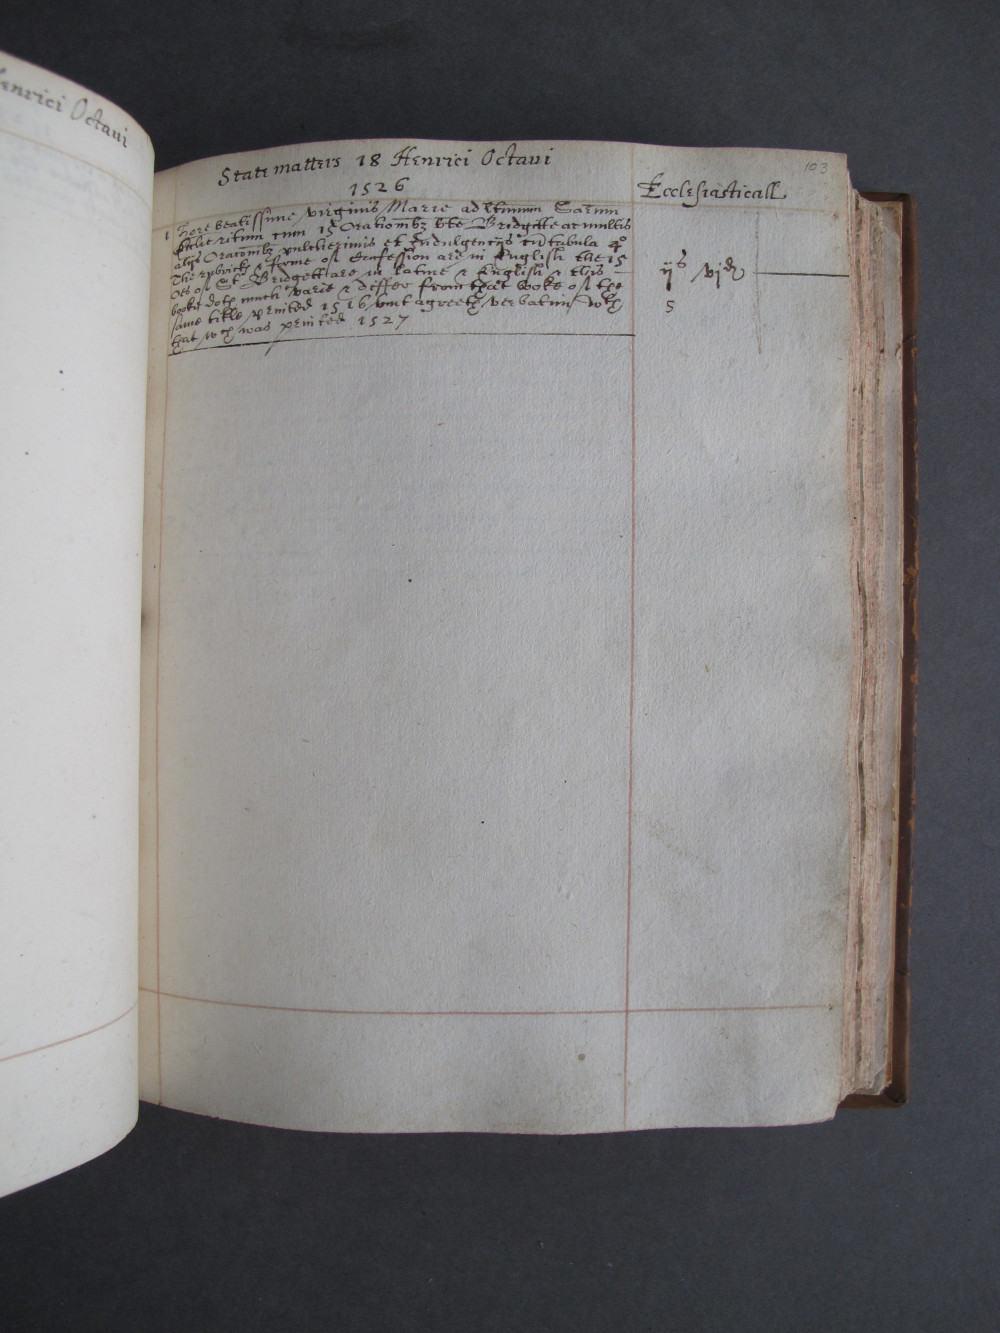 Henrici Octaui
103
State matters 18 Henrici Octaui
1526
Ecclesiasticall
1 Hore beatissime virginis Marie ad usum Sarum
ritum cum 15 Orationibz bte Brigitte ac multis
alijs Oraconibz pulcherimis et Indulgencijs cu tabula 4o
The rubricks & forme of Confession are in English the 15
Oes of St Bridgett are in Latine & English & this
booke doth much varie & differ from that booke of the
same title printed 1516 but agreeth verbatim wth
that wch was printed 1527
ijs vjd
s